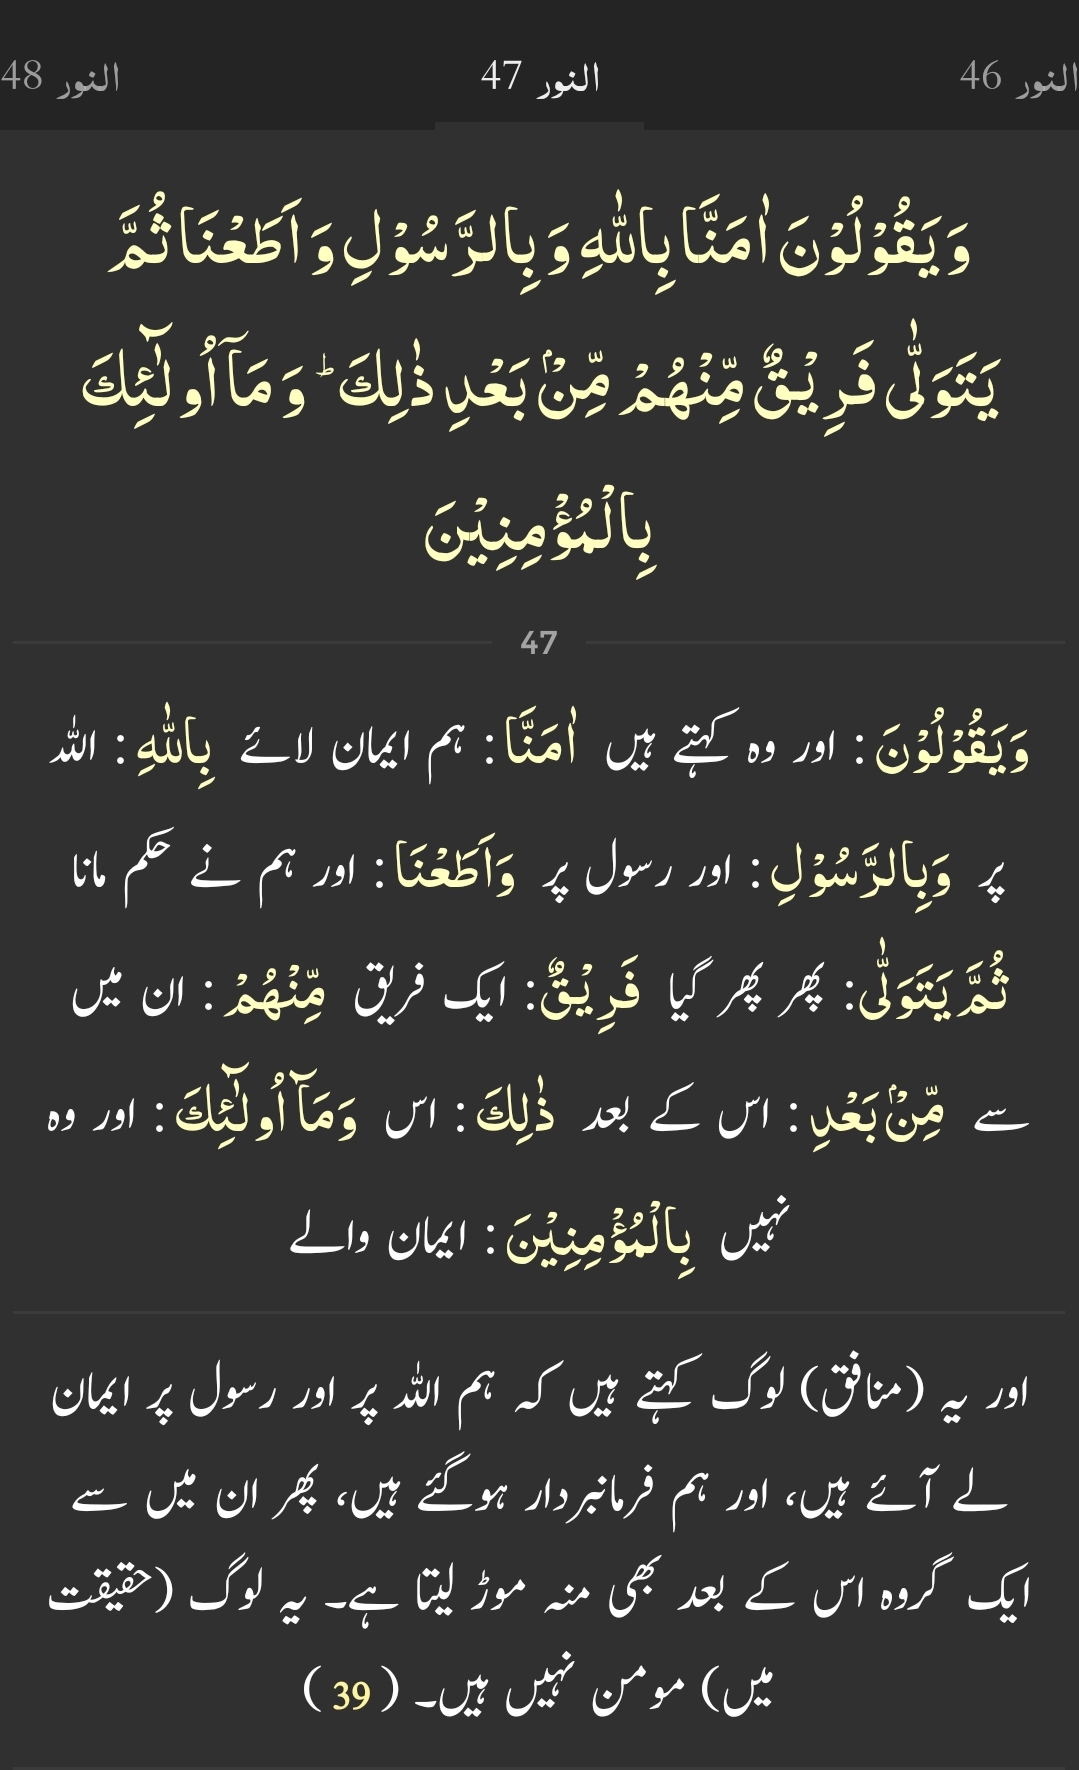 النور 46 النور 47 النور 48
وَيَقُوْلُوْنَ اٰمَنَّا بِاللّٰهِ وَبِالرَّسُوْلِ وَاَطَعْنَا ثُمَّ
يَتَوَلّٰى فَرِيْقٌ مِّنْهُمْ مِّنْۢ بَعْدِ ذٰلِكَ ؕ وَمَاۤ اُولٰٓئِكَ
بِالْمُؤْمِنِيْنَ
47
وَيَقُوْلُوْنَ : اور وہ کہتے ہیں اٰمَنَّا : ہم ایمان لائے بِاللّٰهِ : اللہ
پر وَبِالرَّسُوْلِ : اور رسول پر وَاَطَعْنَا : اور ہم نے حکم مانا
ثُمَّ يَتَوَلّٰى : پھر پھر گیا فَرِيْقٌ : ایک فریق مِّنْهُمْ : ان میں
سے مِّنْۢ بَعْدِ : اس کے بعد ذٰلِكَ : اس وَمَاۤ اُولٰٓئِكَ : اور وہ
نہیں بِالْمُؤْمِنِيْنَ : ایمان والے
اور یہ (منافق) لوگ کہتے ہیں کہ ہم اللہ پر اور رسول پر ایمان
لے آئے ہیں، اور ہم فرمانبردار ہوگئے ہیں، پھر ان میں سے
ایک گروہ اس کے بعد بھی منہ موڑ لیتا ہے۔ یہ لوگ (حقیقت
میں) مومن نہیں ہیں۔ (39)